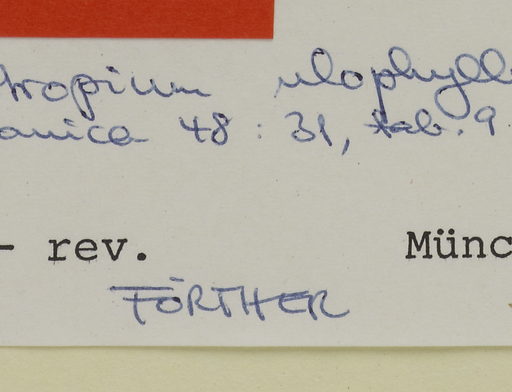 tropium ulophyll
anica 48 : 31, tab. 9
- rev. Münc
FÖRTHER